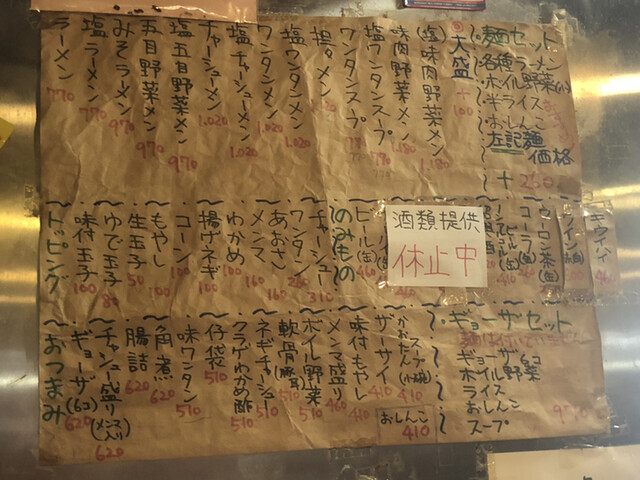 ・麺セット
各種ラーメン
ボイル野菜(小)
半ライス
おしんこ
左記麺
価格
+
250
◎大盛
+
100
(塩)味肉野菜メン
1,180
味肉野菜メン
1,180
塩ワンタンスープ
780
ワンタンスープ
780
担々メン
塩ワンタンメン
1,020
ワンタンメン
1,020
塩チャーシューメン
1,020
チャーシューメン
1,020
塩五目野菜メン
970
五目野菜メン
970
みそラーメン
970
塩ラーメン
770
ラーメン
770
キウイハイ
460
ワイン
ウーロン茶(缶)
コーラ(缶)
260
ノンアルコールビール(缶)
酒類提供
休止中
ビール(缶)
460
のみもの
チャーシュー
310
ワンタン
260
あおさ
160
メンマ
160
わかめ
100
揚げネギ
100
コーン
100
もやし
100
生玉子
50
ゆで玉子
80
味付玉子
100
トッピング
・ギョーザセット
ギョーザ6コ
ボイル野菜
ライス
おしんこ
スープ
おしんこ
410
ザーサイ
410
味付もやし
410
メンマ盛り
460
ボイル野菜
510
軟骨(豚耳)
510
ネギチャーシュー
510
クラゲわかめ酢
510
仔袋
510
味ワンタン
510
角煮
620
腸詰
620
チャーシュー盛り(メンマ入り)
620
ギョーザ(6コ)
620
おつまみ